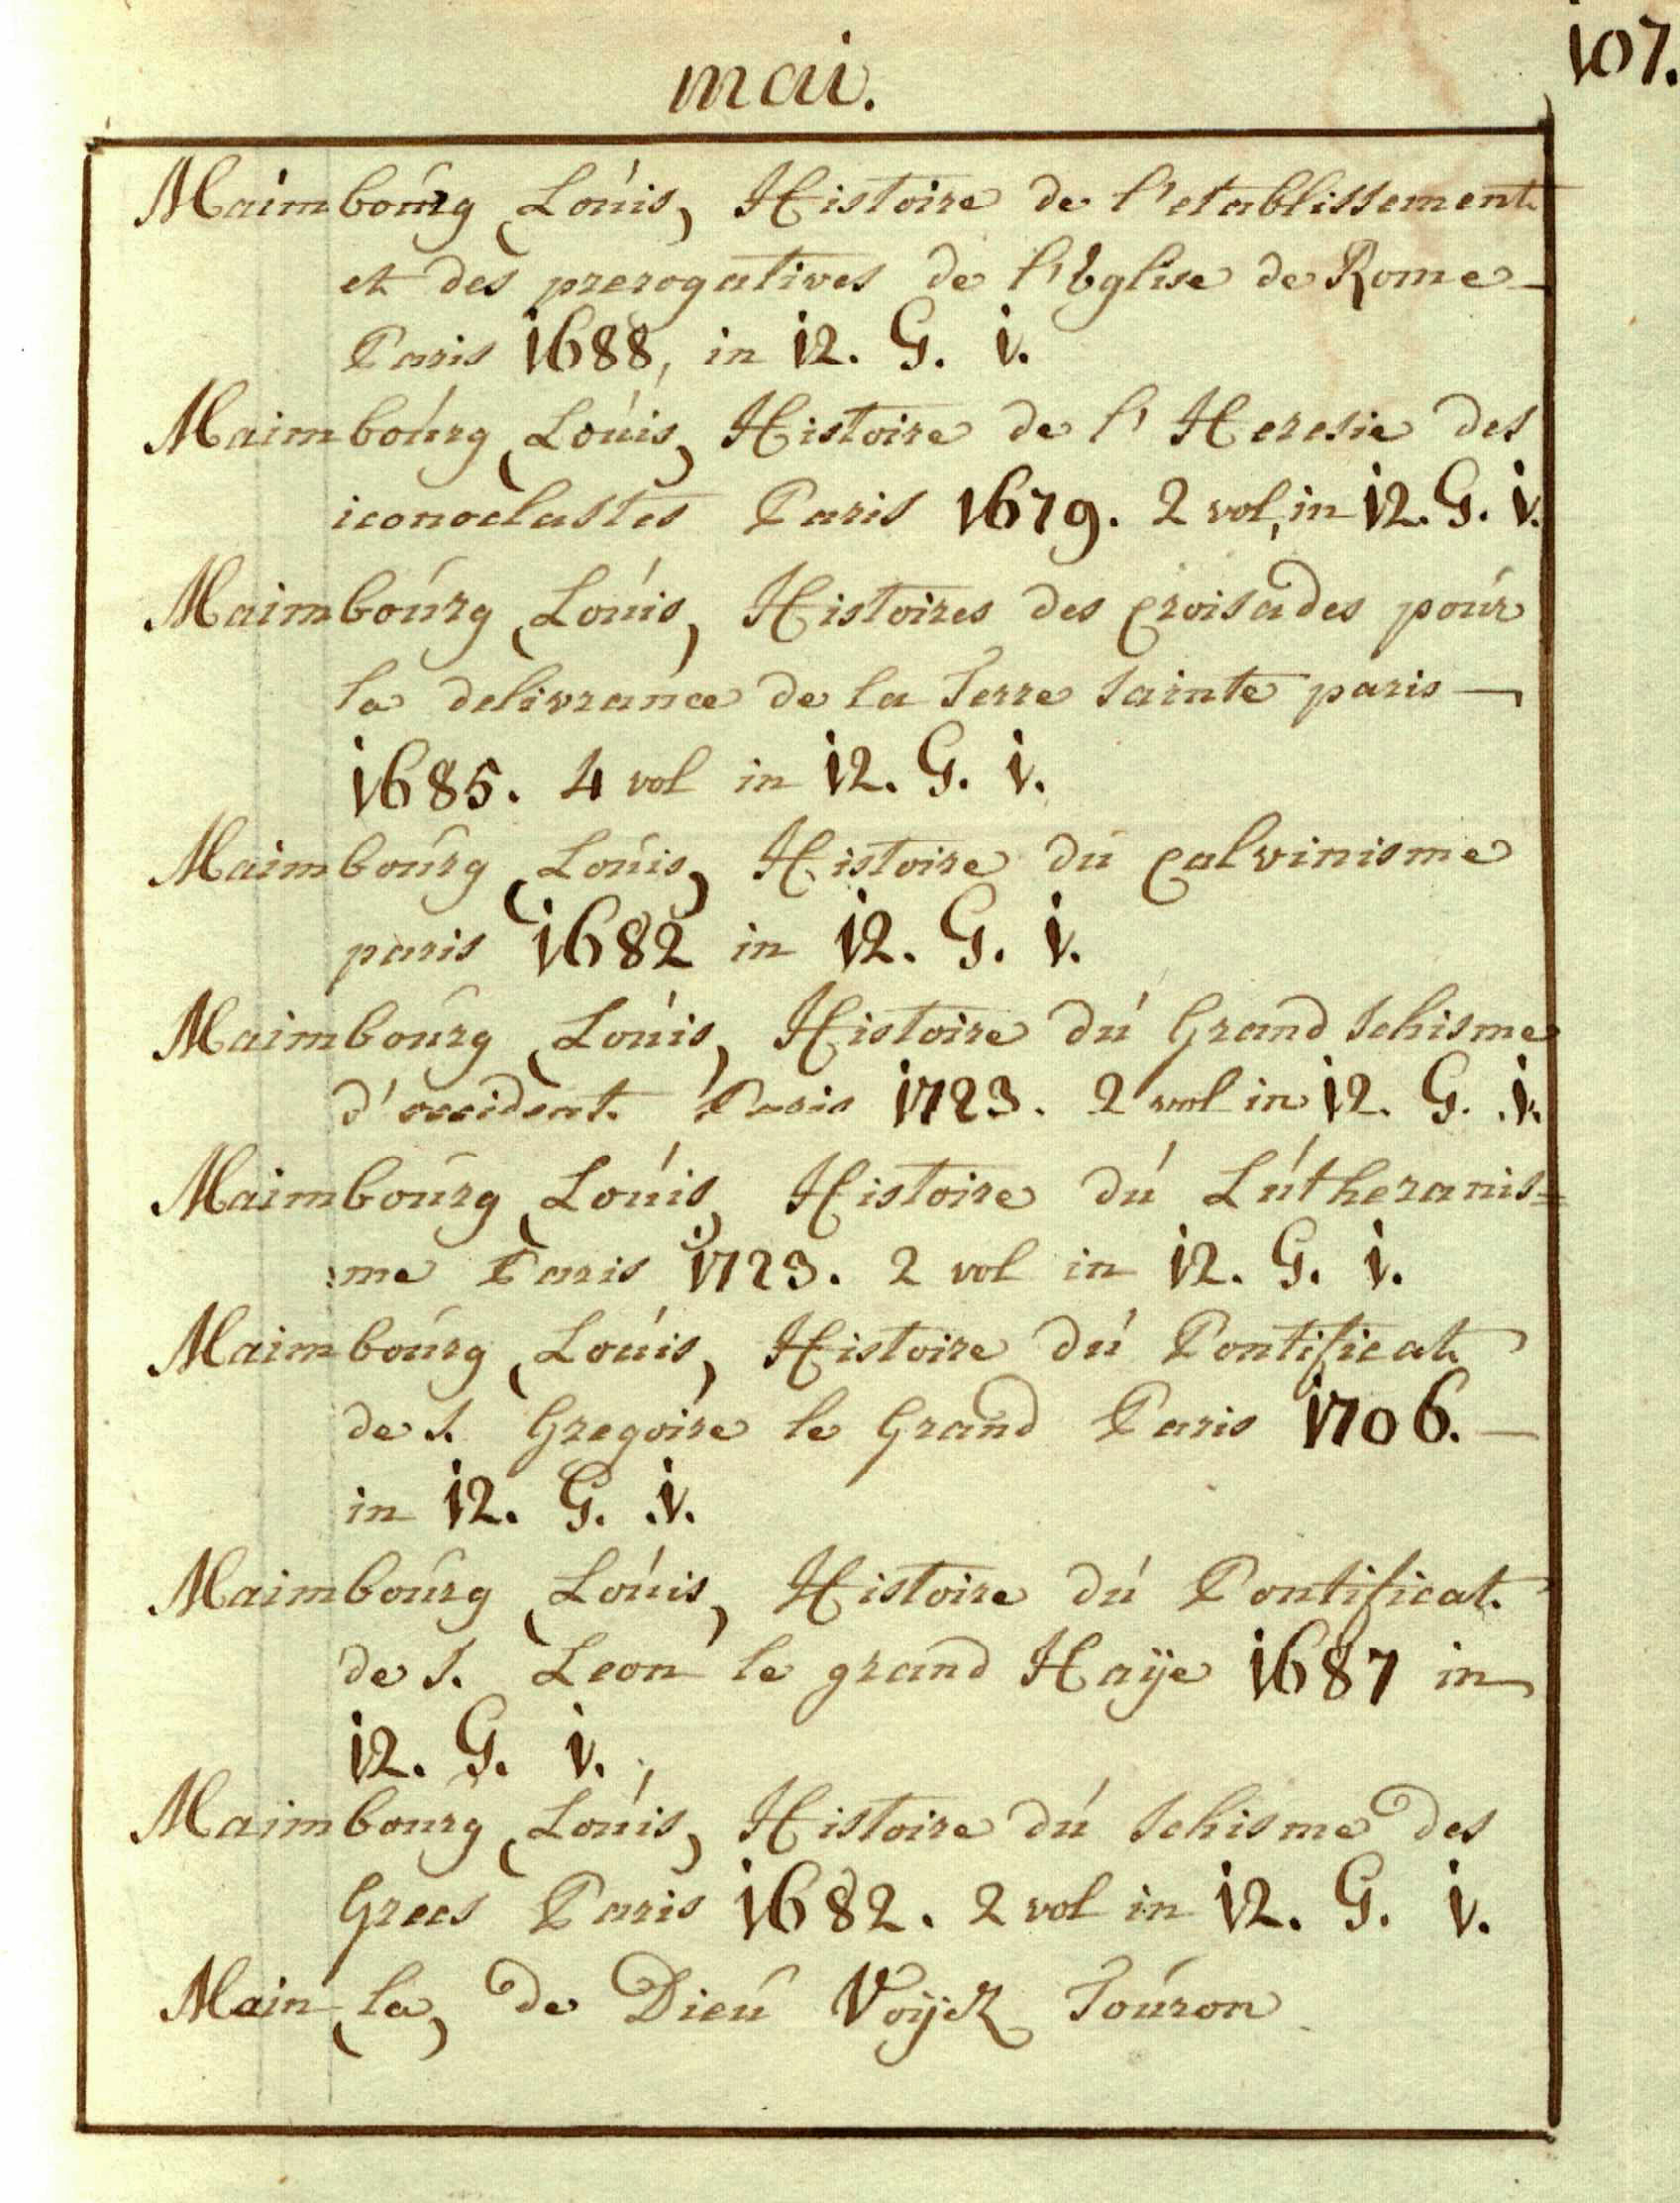 107.
mai.
Maimbourg (Louis) Histoire de l'etablissement
et des prerogatives de l'Eglise de Rome —
Paris 1688, in 12. G. 1.
Maimbourg (Louis) Histoire de l'Heresie des
iconoclastes Paris 1679. 2 vol, in 12. G. 1.
Maimbourg (Louis) Histoires des Croisades pour
la delivrance de la Terre Sainte paris —
1685. 4 vol in 12. G. 1.
Maimbourg (Louis) Histoire du Calvinisme
paris 1682 in 12. G. 1.
Maimbourg (Louis) Histoire du Grand Schisme
d'occident. Paris 1723. 2 vol in 12. G. 1.
Maimbourg (Louis) Histoire du Lutheranis=
:me Paris 1723. 2 vol in 12. G. 1.
Maimbourg (Louis) Histoire du Pontificat
de S. Gregoire le Grand Paris 1706. —
in 12. G. 1.
Maimbourg (Louis) Histoire du Pontificat.
de S. Leon le grand Haÿe 1687 in
12. G. 1.
Maimbourg (Louis) Histoire du Schisme des
Grecs Paris 1682. 2 vol in 12. G. 1.
Main (la) de Dieu Voÿez Touron